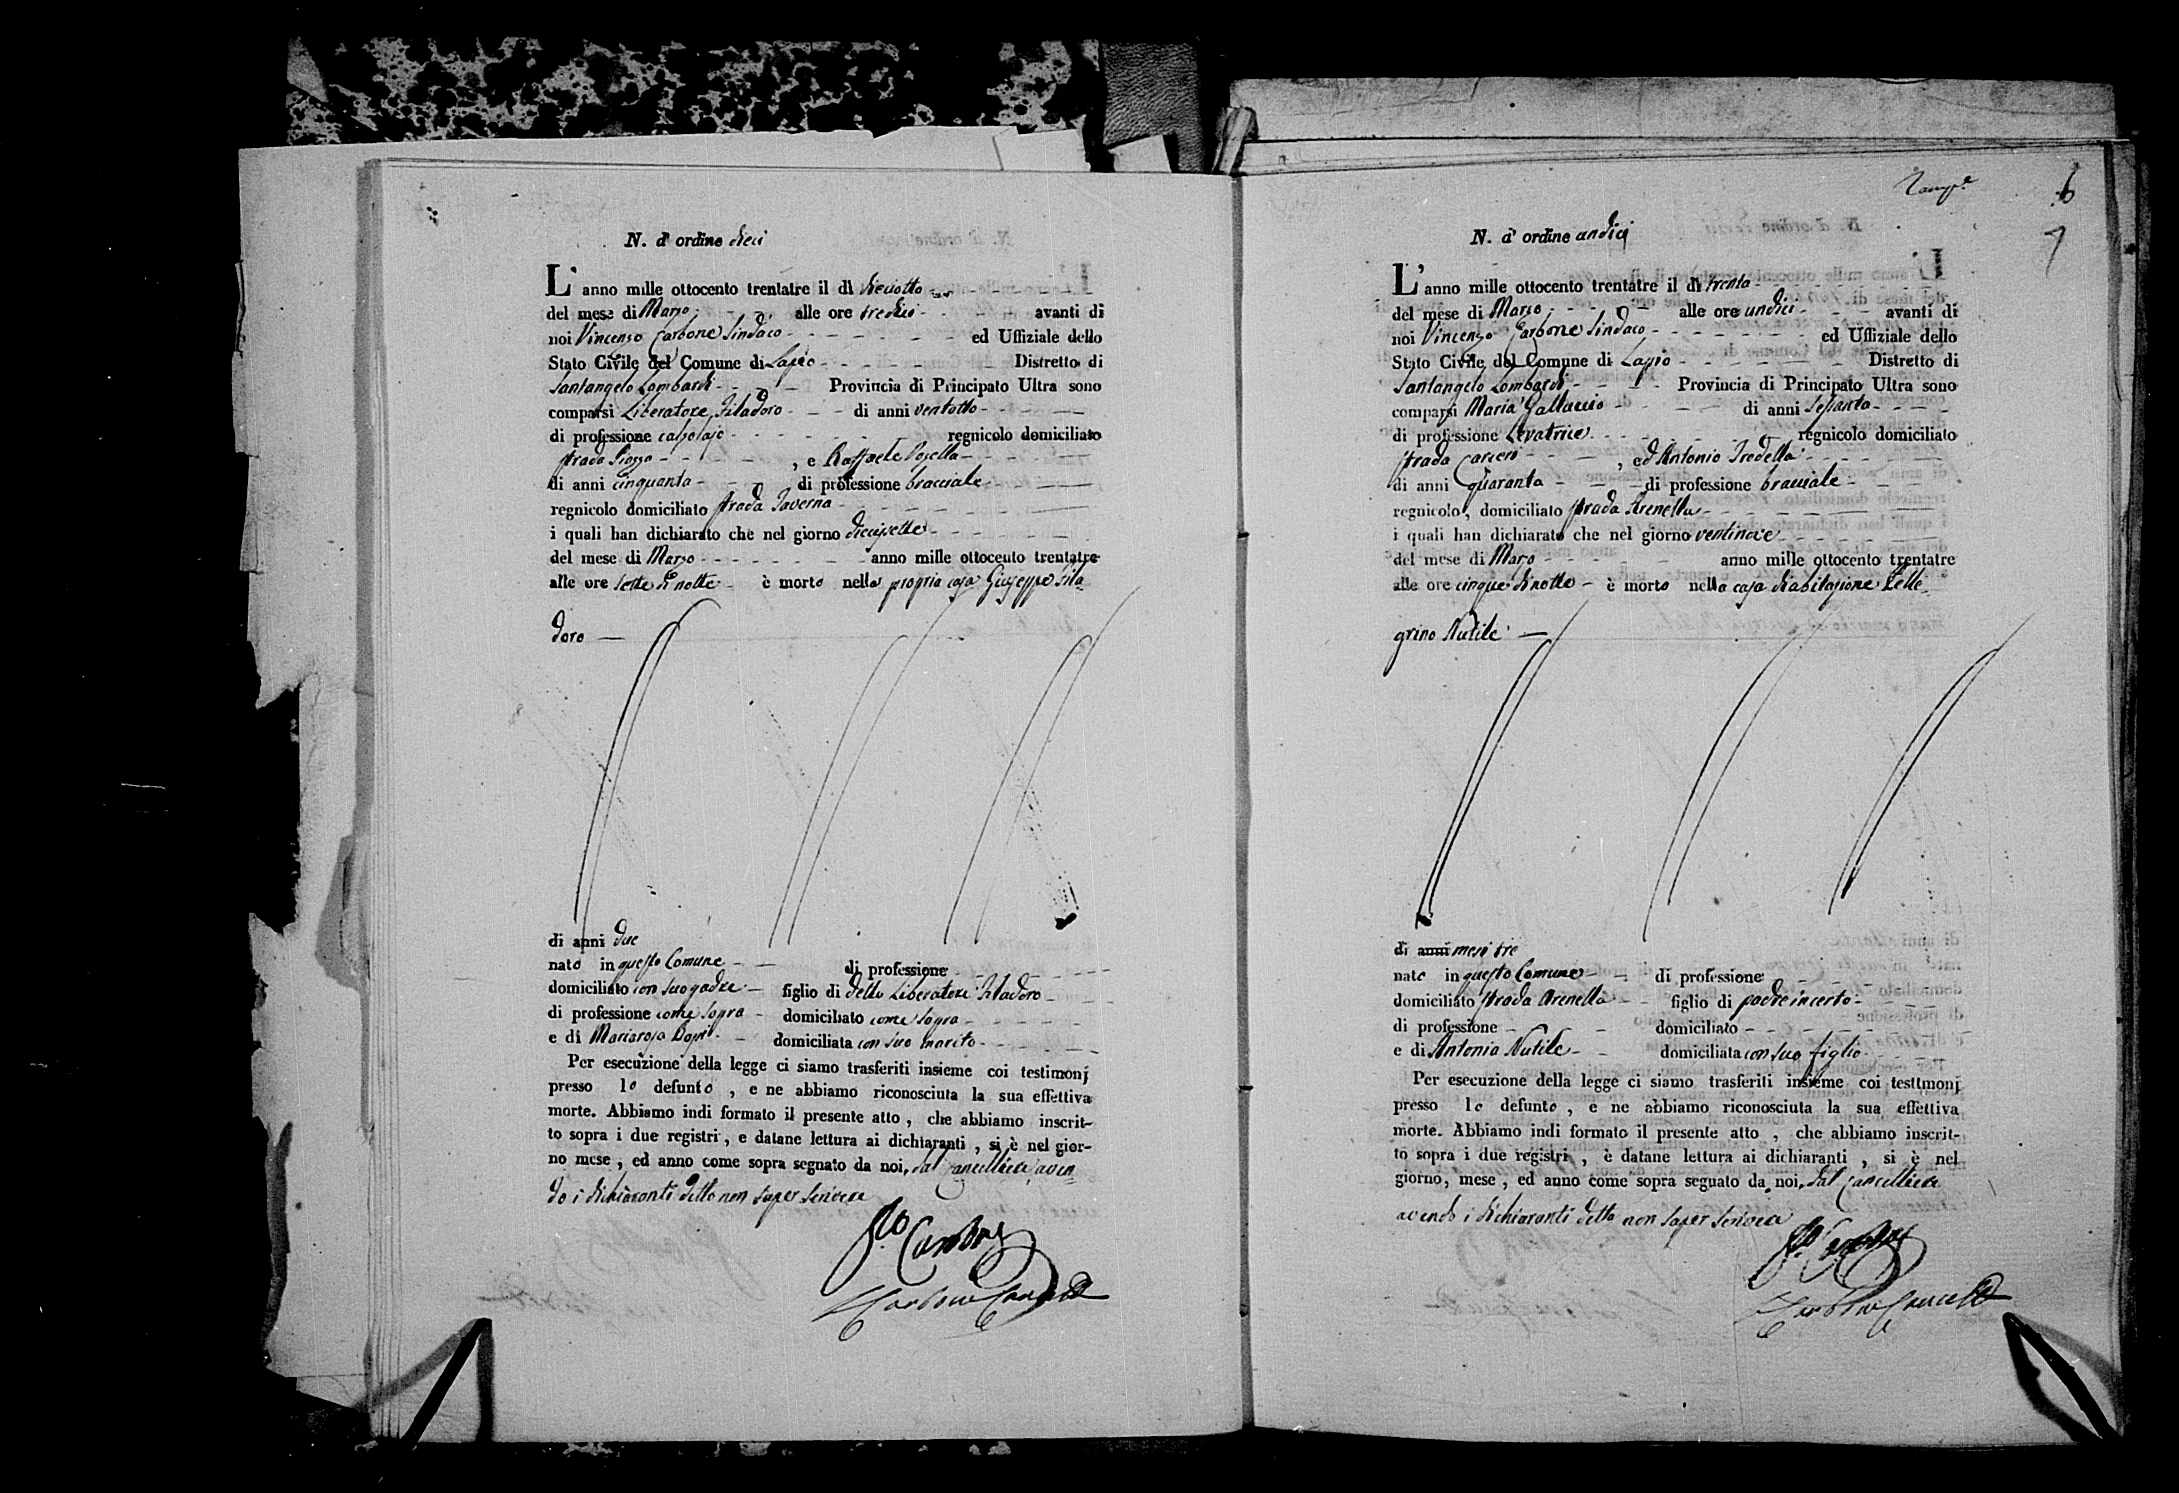 N. d' ordine dieci
L' anno mille ottocento trentatre il dì dieciotto
del mese di Marzo alle ore tredici avanti di
noi Vincenzo Carbone Sindaco ed Uffiziale dello
Stato Civile del Comune di Lapio Distretto di
Santangelo Lombardi Provincia di Principato Ultra sono
comparsi Liberatore Filadoro di anni ventotto
di professione calzolajo regnicolo domiciliato
strada Piazza , e Raffaele
di anni cinquanta di professione bracciale
regnicolo domiciliato strada Taverna
i quali han dichiarato che nel giorno diecisette
del mese di Marzo anno mille ottocento trentatre
alle ore sette di notte è morto nella propria casa Giuseppe Fila-
doro
di anni due
nato in questo Comune di professione
domiciliato con suo padre figlio di detto Liberatore Filadoro
di professione come sopra domiciliato come sopra
e di Mariarosa domiciliata con suo marito
Per esecuzione della legge ci siamo trasferiti insieme coi testimonj
presso lo defunto , e ne abbiamo riconosciuta la sua effettiva
morte. Abbiamo indi formato il presente atto , che abbiamo inscrit-
to sopra i due registri , e datane lettura ai dichiaranti , si è nel gior-
no mese , ed anno come sopra segnato da noi, dal Cancelliere aven-
do i dichiaranti detto non saper scrivere
Carbone
Carbone Cancell
6
7
N. d' ordine undici
L' anno mille ottocento trentatre il dì trenta
del mese di Marzo alle ore undici avanti di
noi Vincenzo Carbone Sindaco ed Uffiziale dello
Stato Civile del Comune di Lapio Distretto di
Santangelo Lombardi Provincia di Principato Ultra sono
comparsi Maria Galluccio di anni sessanta
di professione Levatrice regnicolo domiciliato
strada Carceri , ed Antonio Tredella
di anni quaranta di professione bracciale
regnicolo, domiciliato strada Arenella
i quali han dichiarato che nel giorno ventinove
del mese di Marzo anno mille ottocento trentatre
alle ore cinque di notte è morto nella casa di abitazione Pelle-
grino Nutile
di anni mesi tre
nato in questo Comune di professione
domiciliato strada Arenella figlio di padre incerto
di professione domiciliato
e di Antonia Nutile domiciliata con suo figlio
Per esecuzione della legge ci siamo trasferiti insieme coi testimonj
presso lo defunto , e ne abbiamo riconosciuta la sua effettiva
morte. Abbiamo indi formato il presente atto , che abbiamo inscrit-
to sopra i due registri , e datane lettura ai dichiaranti , si è nel
giorno, mese , ed anno come sopra segnato da noi, dal Cancelliere
avendo i dichiaranti detto non saper scrivere
Carbone
Carbone Cancell